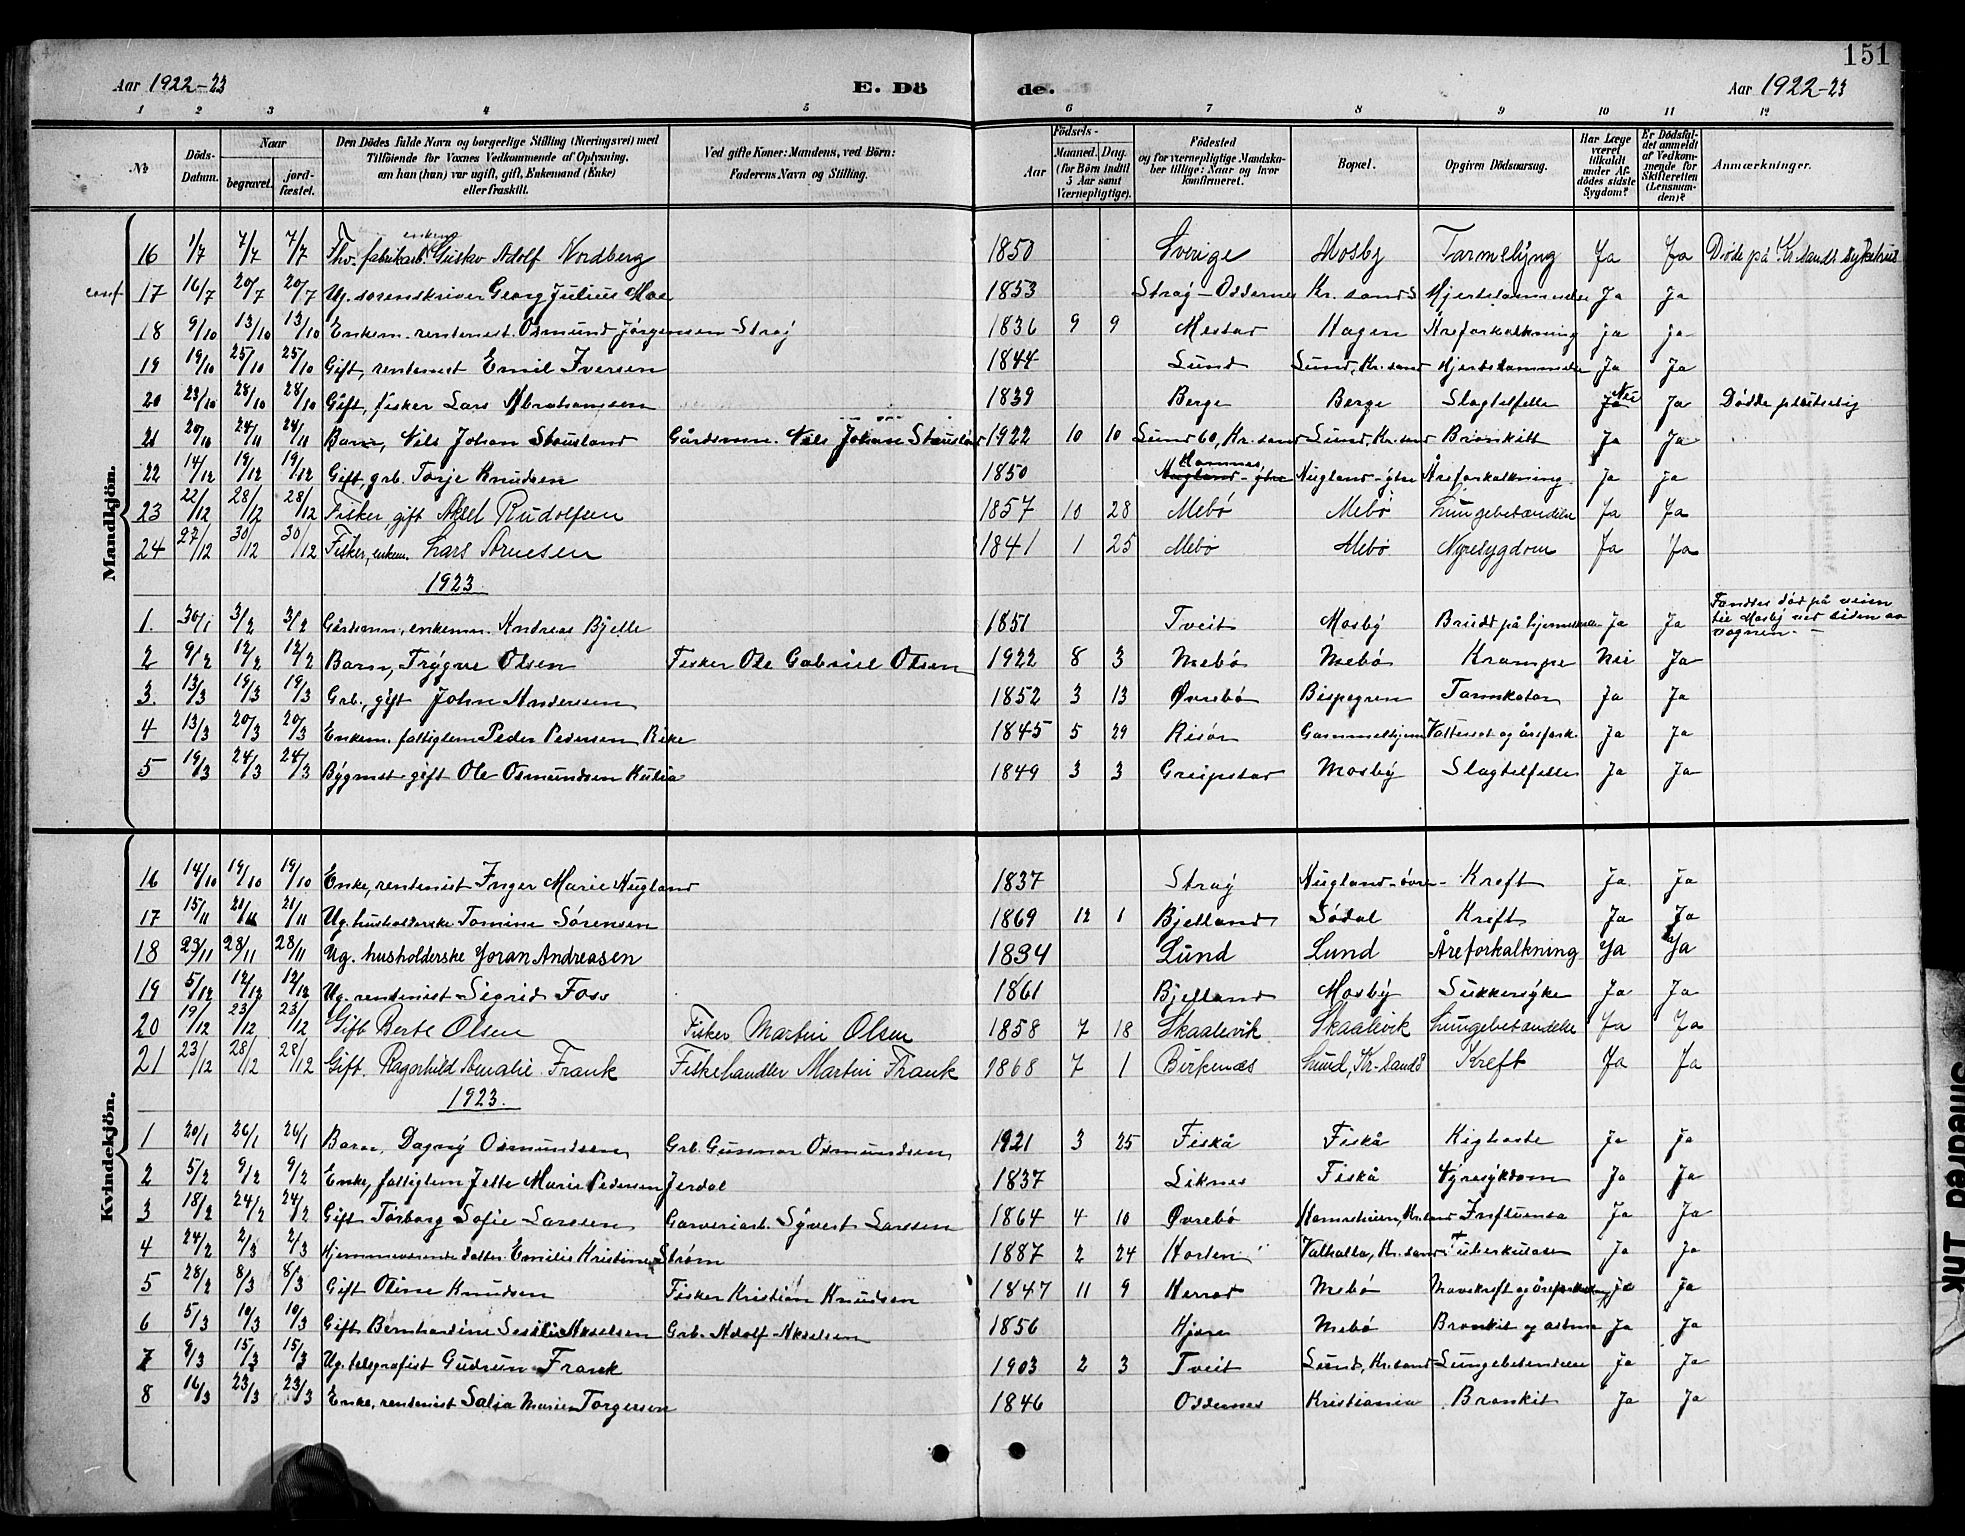 151
Aar 1922-23 E. Dö de. Aar 1922-23
1 2 3 4 5 6 7 8 9 10 11 12
No Döds-Datum. Naar begravet. jordfæstet. Den Dödes fulde Navn og borgerlige Stilling (Næringsvei) med Tilföiende for Voxnes Vedkommende af Oplysning, om han (hun) var ugift, gift, Enkemand (Enke) eller fraskilt. Ved gifte Koner: Mandens, ved Börn: Faderens Navn og Stilling. Födsels- Aar Maaned. Dag. (for Börn indtil 5 Aar samt Værnepligtige). Födested og for værnepligtige Mandskaber tillige: Naar og hvor konfirmeret. Bopæl. Opgiven Dödsaarsag. Har Læge været tilkaldt under Afdödes sidste Sygdom? Er Dödsfaldet anmeldt af Vedkommende for Skifteretten (Lensmanden)? Anmærkninger.
Mandkjön.
enkem.
16 1/7 7/7 7/7 Fhv. fabrikarb. Gustav Adolf Nordberg 1850 Sverige Mosby Tarmslyng Ja Ja Døde på Kr.sands sykehus
conf. 17 16/7 20/7 20/7 Ug. sorenskriver Georg Julius Moe 1853 Strai - Oddernes Kr.sand S Hjertelammelse Ja Ja
18 9/10 13/10 13/10 Enkem. rentenist. Osmund Jørgensen Strai 1836 9 9 Mestad Hagen Åreforkalkning Ja Ja
19 19/10 25/10 25/10 Gift, rentenist Emil Iversen 1844 Lund Lund, Kr.sand Hjertelammelse Ja Ja
20 23/10 28/10 28/10 Gift, fisker Lars Abrahamsen 1839 Berge Berge Slagtilfelle Ja Nei Ja Døde plutselig
21 20/11 24/11 24/11 Barn, Nils Johan Stausland Gårdsmn. Nils Johan Stausland 1922 10 10 Lund 60, Kr.sand Lund, Kr.sand Bronkitt Ja Ja
22 14/12 19/12 19/12 Gift, grb. Torje Knudsen 1850 Hugland - ytre Hamnes Hugland - ytre Åreforkalkning Ja Ja
23 22/12 28/12 28/12 Fisker, gift Aksel Rudolfsen 1857 10 28 Mebø Mebø Lungebetændelse Ja Ja
24 27/12 30/12 30/12 Fisker, enkem. Lars Arnesen 1841 1 25 Mebø Mebø Nyresygdom Ja Ja
1923
1. 30/1 3/2 3/2 Gårdsmn., enkemn. Andreas Bjelle 1851 Tveit Mosby Brudd på hjerneskallen Ja Ja Fandtes død på veien til Mosby ved siden av vognen. -
2 9/2 12/2 12/2 Barn, Trygve Olsen Fisker Ole Gabriel Olsen 1922 8 3 Mebø Mebø Krampe Nei Ja
3. 13/3 19/3 19/3 Grb., gift John Andersen 1852 3 13 Øvrebø Bispegren Tarmkatar Ja Ja
4 13/3 20/3 20/3 Enkem. fattiglem Peder Pedersen Rike 1845 5 29 Risør Gammelhjem Vattersot og årefork. Ja Ja
5 19/3 24/3 24/3 Bygmst. gift Ole Osmundsen Kulia 1849 3 3 Greipstad Mosby Slagtilfelle Ja Ja
Kvindekjön.
16 14/10 19/10 19/10 Enke, rentenist Inger Marie Hugland 1837 Strai Hugland - øvre - Kreft Ja Ja
17 15/11 21/11 21/11 Ug. husholderske Tomine Sørensen 1869 12 1 Bjelland Sødal Kreft Ja Ja
18 23/11 28/11 28/11 Ug. husholderske Joran Andreasen 1834 Lund Lund Åreforkalkning Ja Ja
19 5/12 12/12 12/12 Ug. rentenist Sigrid Foss 1861 Bjelland Mosby Sukkersyke Ja Ja
20 19/12 23/12 23/12 Gift Berte Olsen Fisker Martin Olsen 1858 7 18 Skaalevik Skaalevik Lungebetændelse Ja Ja
21 23/12 28/12 28/12 Gift. Ragnhild Amalie Frank Fiskehandler Martin Frank 1868 7 1 Birkenæs Lund, Kr.sand S Kreft Ja Ja
1923.
1 20/1 26/1 26/1 Barn, Dagny Osmundsen Grb. Gunnar Osmundsen 1921 3 25 Fiskå Fiskå Kighoste Ja Ja
2 5/2 9/2 9/2 Enke, fattiglem Jette Marie Pedersen Jerdal 1837 Liknes Fiskå Nyresykdom Ja Ja
3 18/2 24/2 24/2 Gift Torborg Sofie Larssen Garveriarb. Syvert Larssen 1864 4 10 Øvrebø Kr.sand Influensa Ja Ja
4 24/2 2/3 2/3 Hjemmeværende datter Emilie Kristine Strøm 1887 2 24 Horten Valhalla, Kr.sand Tuberkulose Ja Ja
5 28/2 8/3 8/3 Gift Oline Knudsen Fisker Kristian Knudsen 1847 11 9 Herrad Mebø Mavekreft og åreforkalkning Ja Ja
6 5/3 10/3 10/3 Gift Bernhardine Sesilie Akselsen Grb. Adolf Akselsen 1856 Mebø Bronkit og astma Ja Ja
7 9/3 15/3 15/3 Ug. telegrafist Gudrun Frank 1903 2 3 Tveit Lund, Kr.sand Lungebetendelse Ja Ja
8 16/3 23/3 23/3 Enke, rentenist Salia Marie Torgersen 1846 Oddernes Kristiania Bronkit Ja Ja
Smeared Ink